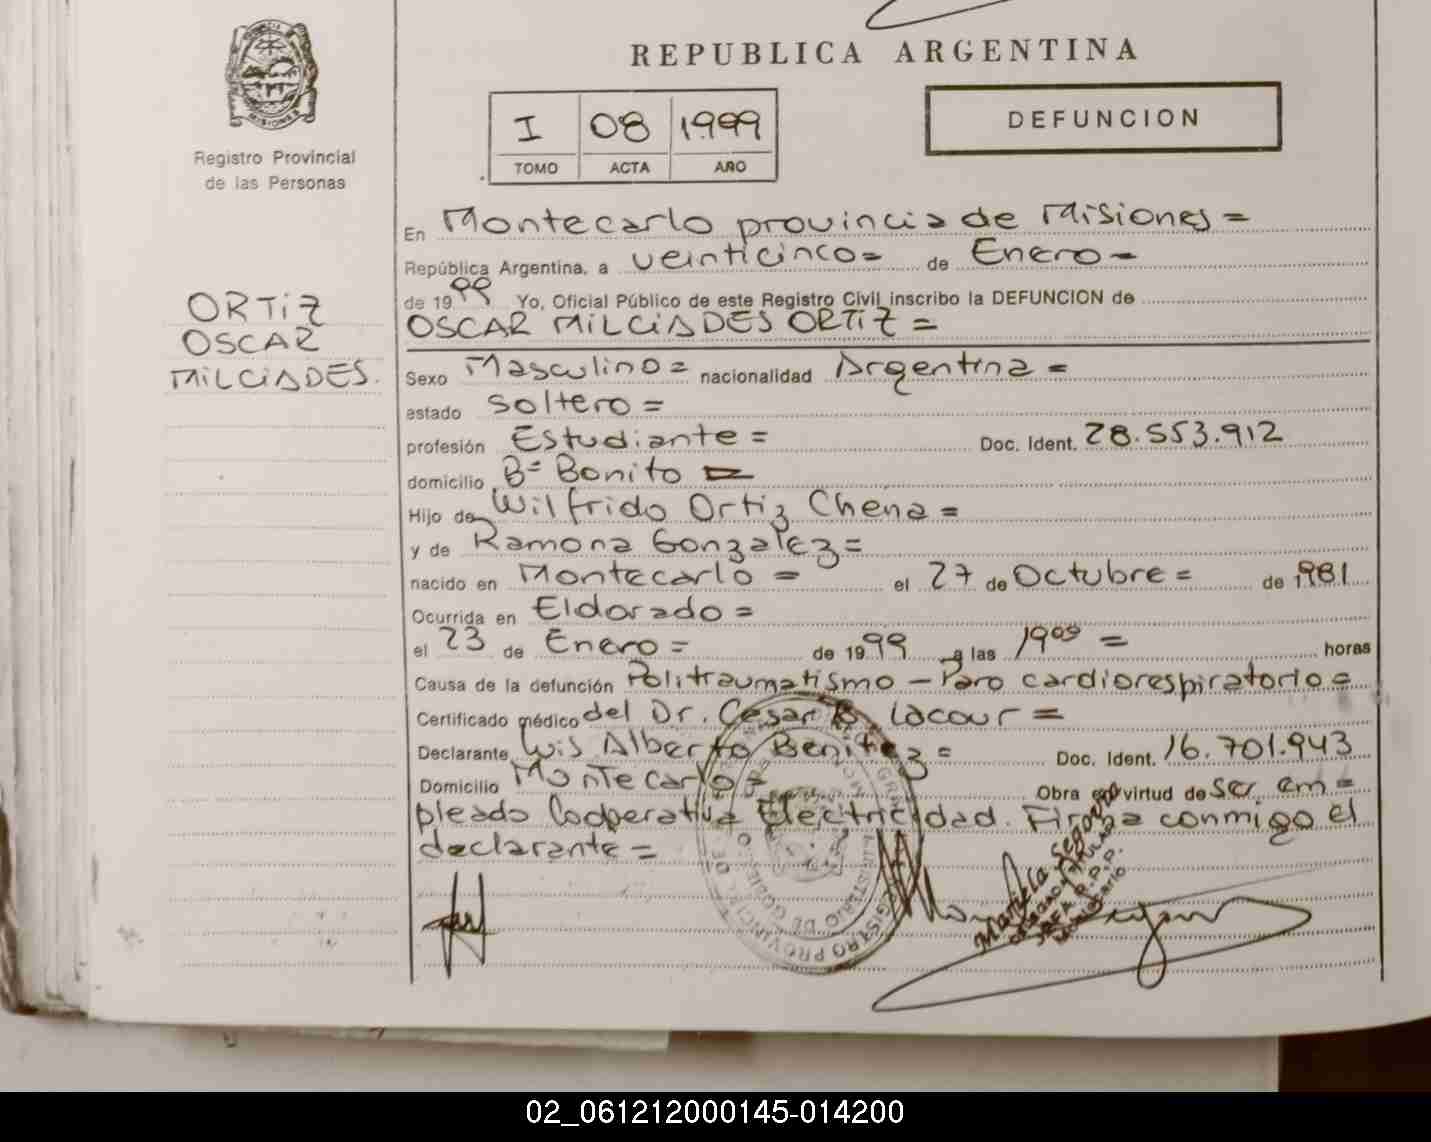 REPUBLICA ARGENTINA
MISIONES
Registro Provincial
de las Personas
I 08 1999
TOMO ACTA AÑO
DEFUNCION
ORTIZ
OSCAR
MILCIADES.
En Montecarlo provincia de Misiones =
República Argentina, a veinticinco= de Enero=
de 1999 Yo, Oficial Público de este Registro Civil inscribo la DEFUNCION de
OSCAR MILCIADES ORTIZ =
Sexo Masculino= nacionalidad Argentina =
estado Soltero =
profesión Estudiante = Doc. Ident. 28.553.912
domicilio Bº Bonito =
Hijo de Wilfrido Ortiz Chena =
y de Ramona Gonzalez =
nacido en Montecarlo = el 27 de Octubre = de 1981
Ocurrida en Eldorado =
el 23 de Enero = de 1999 a las 19 09 = horas
Causa de la defunción Politraumatismo - Paro cardiorespiratorio =
Certificado médico del Dr. Cesar B. Lacour =
Declarante Luis Alberto Benitez = Doc. Ident. 16.701.943
Domicilio Montecarlo = Obra en virtud de ser em=
pleado Cooperativa Electricidad. Firma conmigo el
declarante =
REGISTRO PROVINCIAL DE
MINISTERIO DE GOBIERNO
Mariela Segovia
Montecarlo
02_061212000145-014200